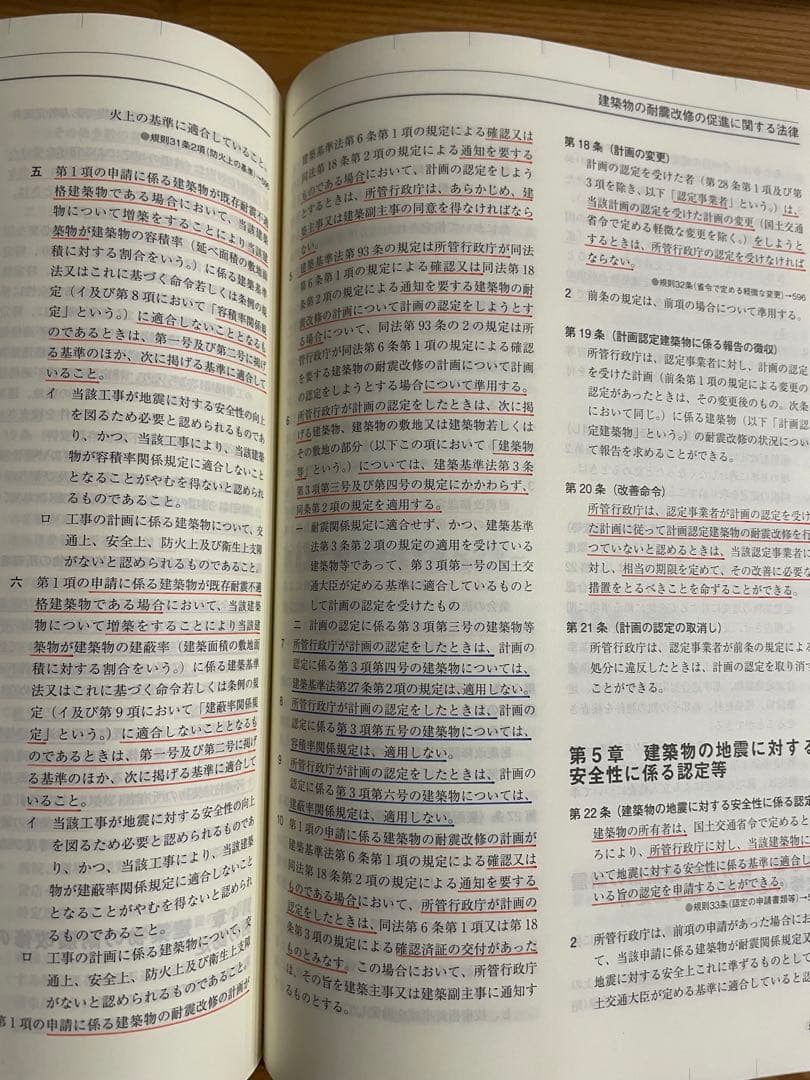 火上の基準に適合していること。
●規則31条2項(防火上の基準)→596
五 第1項の申請に係る建築物が既存耐震不適
格建築物である場合において、当該建築
物について増築をすることにより当該建
築物が建築物の容積率（延べ面積の敷地面
積に対する割合をいう。）に係る建築基準
法又はこれに基づく命令若しくは条例の規
定（イ及び第8項において「容積率関係規
定」という。）に適合しないこととなるも
のであるときは、第一号及び第二号に掲げ
る基準のほか、次に掲げる基準に適合して
いること。
イ 当該工事が地震に対する安全性の向上
を図るため必要と認められるものであ
り、かつ、当該工事により、当該建築
物が容積率関係規定に適合しないこと
となることがやむを得ないと認められ
るものであること。
ロ 工事の計画に係る建築物について、交
通上、安全上、防火上及び衛生上支障
がないと認められるものであること。
六 第1項の申請に係る建築物が既存耐震不適
格建築物である場合において、当該建築
物について増築をすることにより当該建
築物が建築物の建蔽率（建築面積の敷地面
積に対する割合をいう。）に係る建築基準
法又はこれに基づく命令若しくは条例の規
定（イ及び第9項において「建蔽率関係規
定」という。）に適合しないこととなるも
のであるときは、第一号及び第二号に掲げ
る基準のほか、次に掲げる基準に適合して
いること。
イ 当該工事が地震に対する安全性の向上
を図るため必要と認められるものであ
り、かつ、当該工事により、当該建築
物が建蔽率関係規定に適合しないこと
となることがやむを得ないと認められ
るものであること。
ロ 工事の計画に係る建築物について、交
通上、安全上、防火上及び衛生上支障
がないと認められるものであること。
第1項の申請に係る建築物の耐震改修の計画が
建築基準法第6条第1項の規定による確認又は
同法第18条第2項の規定による通知を要する
ものである場合において、計画の認定をしよう
とするときは、所管行政庁は、あらかじめ、建
築主事又は建築副主事の同意を得なければなら
ない。
5 建築基準法第93条の規定は所管行政庁が同法
第6条第1項の規定による確認又は同法第18
条第2項の規定による通知を要する建築物の耐
震改修の計画について計画の認定をしようとす
る場合について、同法第93条の2の規定は所
管行政庁が同法第6条第1項の規定による確認
を要する建築物の耐震改修の計画について計画
の認定をしようとする場合について準用する。
6 所管行政庁が計画の認定をしたときは、次に掲
げる建築物、建築物の敷地又は建築物若しくは
その敷地の部分（以下この項において「建築物
等」という。）については、建築基準法第3条
第3項第三号及び第四号の規定にかかわらず、
同条第2項の規定を適用する。
一 耐震関係規定に適合せず、かつ、建築基準
法第3条第2項の規定の適用を受けている
建築物等であって、第3項第一号の国土交
通大臣が定める基準に適合しているものと
して計画の認定を受けたもの
二 計画の認定に係る第3項第三号の建築物等
7 所管行政庁が計画の認定をしたときは、計画の
認定に係る第3項第四号の建築物については、
建築基準法第27条第2項の規定は、適用しない。
8 所管行政庁が計画の認定をしたときは、計画の
認定に係る第3項第五号の建築物については、
容積率関係規定は、適用しない。
9 所管行政庁が計画の認定をしたときは、計画の
認定に係る第3項第六号の建築物については、
建蔽率関係規定は、適用しない。
10 第1項の申請に係る建築物の耐震改修の計画が
建築基準法第6条第1項の規定による確認又は
同法第18条第2項の規定による通知を要する
ものである場合において、所管行政庁が計画の
認定をしたときは、同法第6条第1項又は第18
条第3項の規定による確認済証の交付があった
ものとみなす。この場合において、所管行政庁
は、その旨を建築主事又は建築副主事に通知す
るものとする。
建築物の耐震改修の促進に関する法律
第18条（計画の変更）
計画の認定を受けた者（第28条第1項及び第
3項を除き、以下「認定事業者」という。）は、
当該計画の認定を受けた計画の変更（国土交通
省令で定める軽微な変更を除く。）をしようと
するときは、所管行政庁の認定を受けなければ
ならない。
●規則32条(省令で定める軽微な変更)→596
2 前条の規定は、前項の場合について準用する。
第19条（計画認定建築物に係る報告の徴収）
所管行政庁は、認定事業者に対し、計画の認定
を受けた計画（前条第1項の規定による変更の
認定があったときは、その変更後のもの。次条
において同じ。）に係る建築物（以下「計画認
定建築物」という。）の耐震改修の状況につい
て報告を求めることができる。
第20条（改善命令）
所管行政庁は、認定事業者が計画の認定を受け
た計画に従って計画認定建築物の耐震改修を行
っていないと認めるときは、当該認定事業者に
対し、相当の期限を定めて、その改善に必要な
措置をとるべきことを命ずることができる。
第21条（計画の認定の取消し）
所管行政庁は、認定事業者が前条の規定による
処分に違反したときは、計画の認定を取り消す
ことができる。
第5章 建築物の地震に対する
安全性に係る認定等
第22条（建築物の地震に対する安全性に係る認定
建築物の所有者は、国土交通省令で定めると
ろにより、所管行政庁に対し、当該建築物に
いて地震に対する安全性に係る基準に適合し
いる旨の認定を申請することができる。
●規則33条(認定の申請書類等)→5
2 所管行政庁は、前項の申請があった場合にお
て、当該申請に係る建築物が耐震関係規定又
地震に対する安全上これに準ずるものとして
土交通大臣が定める基準に適合していると認